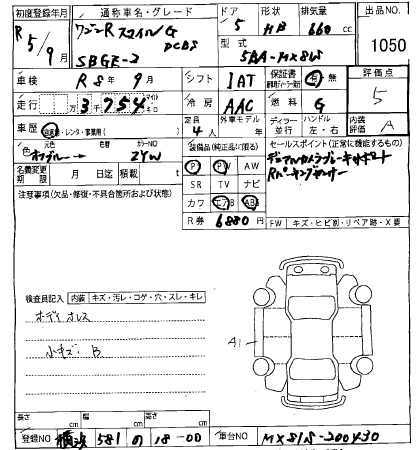 初度登録年月 通称車名・グレード ドア 形状 排気量 出品NO.
R5/9 ワゴンR スマイル G 5 HB 660cc 1050
DCBS
SBGE-2 型式 5BA-MX81S
車検 R 8年 9月 シフト IAT 保証書 有・無 評価点
走行 万 3千754 マイル キロ 冷房 AAC 燃料 G 5
定員 4人 外車モデル 年 ディラー 並行 ハンドル 左・右 内装評価 A
車歴 自家用・レンタ・事業用( )
色 元色 色替 カラーNO 装備品(純正品に限る) セールスポイント(正常に機能するもの)
→ ZYW PS PW AW デュアルカメラブレーキサポート
名義変更期限 月 日迄 積載 t SR TV ナビ Rパーキングセンサー
注意事項(欠品・修復・不具合箇所および状態) カワ エアB ABS
R券 6880円 FW キズ・ヒビ割・リペア跡・X要
検査員記入 内装 キズ・汚レ・コゲ・穴・スレ・キレ
ボディ オレス
小キズ・B
A1
長さ cm 幅 cm 高さ cm
登録NO 横浜 581 の 18-00 車台NO MX81S-200430